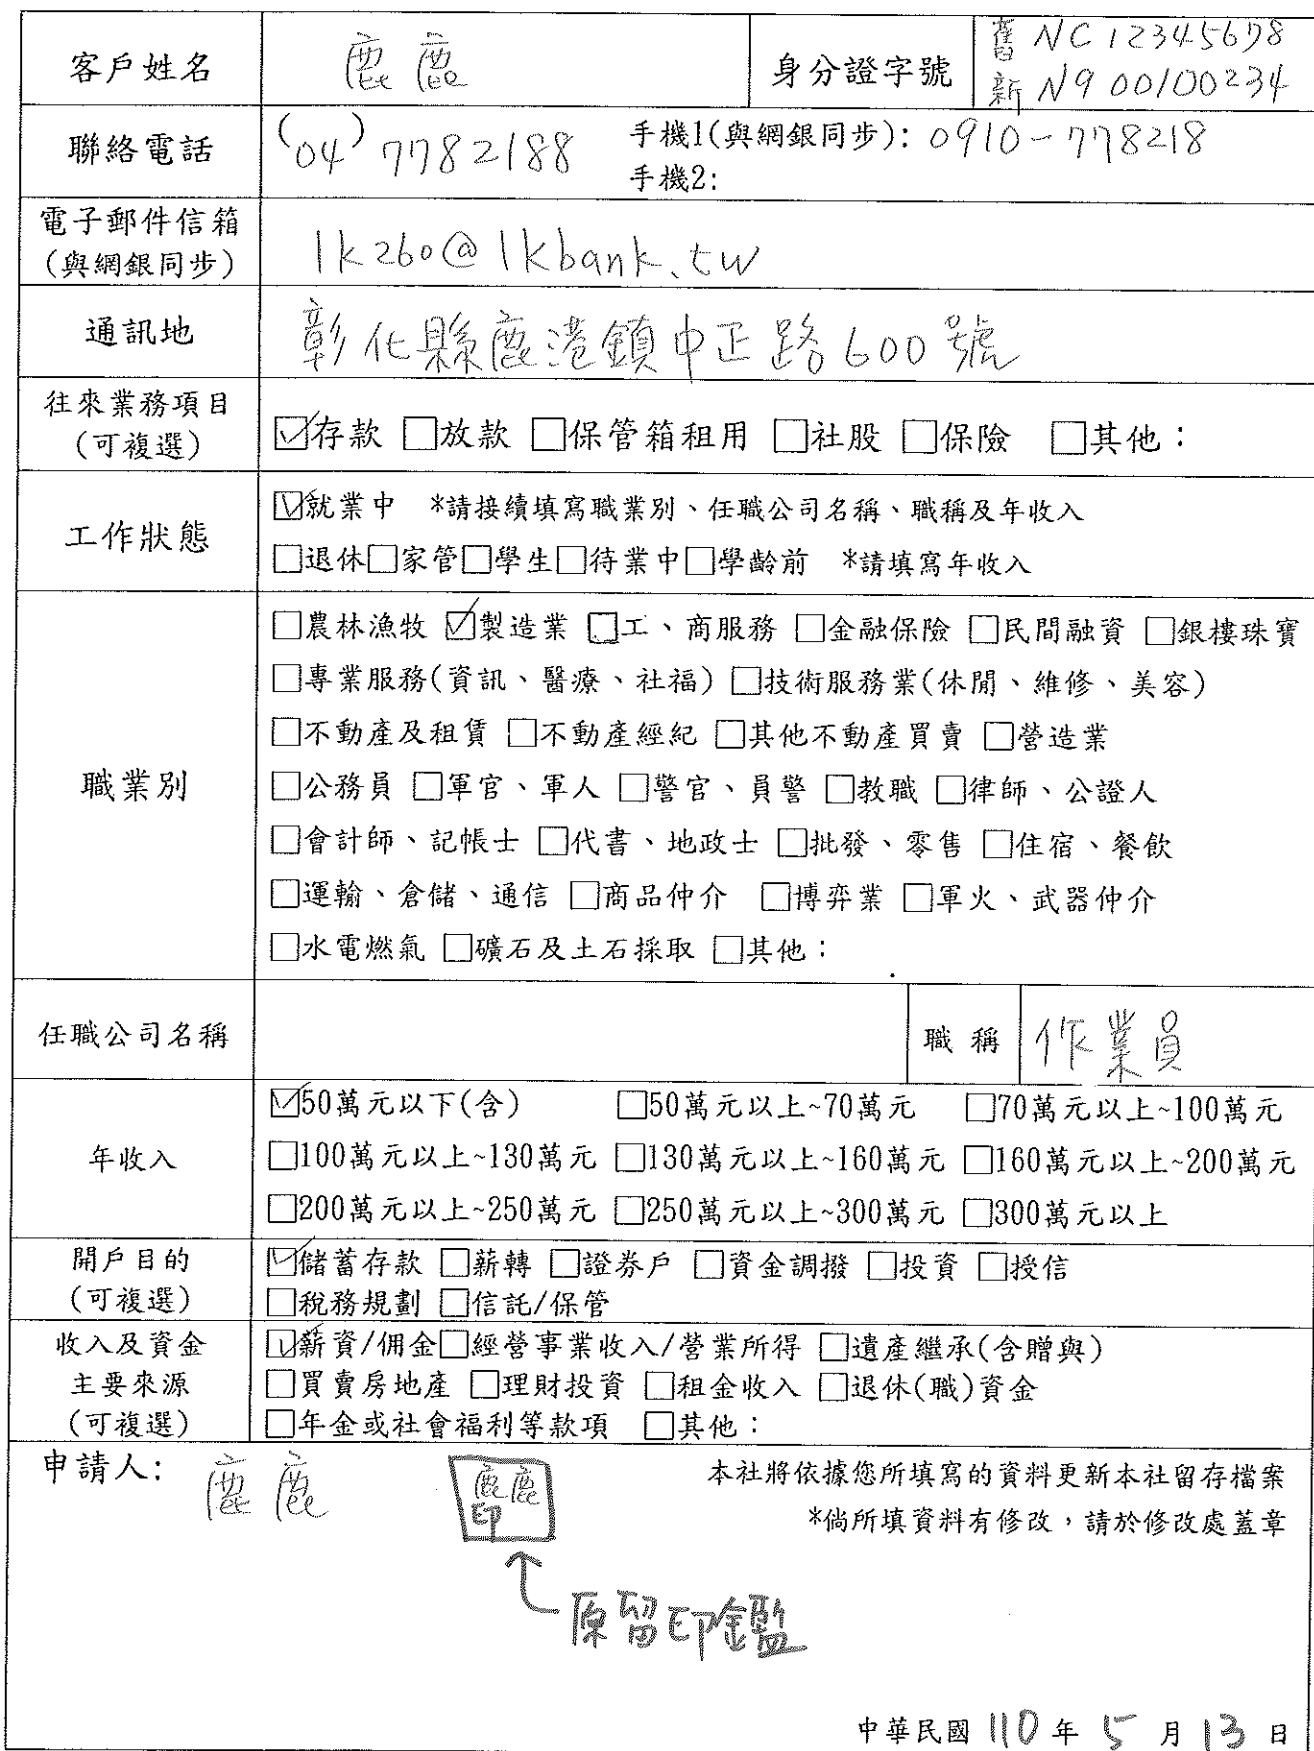 客戶姓名 鹿鹿 身分證字號 舊 NC12345678
新 N900100234
聯絡電話 (04)7782188 手機1(與網銀同步): 0910-778218
手機2:
電子郵件信箱
(與網銀同步) lk260@lkbank.tw
通訊地 彰化縣鹿港鎮中正路600號
往來業務項目
(可複選) ☑存款 □放款 □保管箱租用 □社股 □保險 □其他：
工作狀態 ☑就業中 *請接續填寫職業別、任職公司名稱、職稱及年收入
□退休□家管□學生□待業中□學齡前 *請填寫年收入
職業別 □農林漁牧 ☑製造業 □工、商服務 □金融保險 □民間融資 □銀樓珠寶
□專業服務(資訊、醫療、社福) □技術服務業(休閒、維修、美容)
□不動產及租賃 □不動產經紀 □其他不動產買賣 □營造業
□公務員 □軍官、軍人 □警官、員警 □教職 □律師、公證人
□會計師、記帳士 □代書、地政士 □批發、零售 □住宿、餐飲
□運輸、倉儲、通信 □商品仲介 □博弈業 □軍火、武器仲介
□水電燃氣 □礦石及土石採取 □其他：
任職公司名稱 職稱 作業員
年收入 ☑50萬元以下(含) □50萬元以上~70萬元 □70萬元以上~100萬元
□100萬元以上~130萬元 □130萬元以上~160萬元 □160萬元以上~200萬元
□200萬元以上~250萬元 □250萬元以上~300萬元 □300萬元以上
開戶目的
(可複選) ☑儲蓄存款 □薪轉 □證券戶 □資金調撥 □投資 □授信
□稅務規劃 □信託/保管
收入及資金
主要來源
(可複選) ☑薪資/佣金□經營事業收入/營業所得 □遺產繼承(含贈與)
□買賣房地產 □理財投資 □租金收入 □退休(職)資金
□年金或社會福利等款項 □其他：
申請人: 鹿鹿 鹿鹿印 本社將依據您所填寫的資料更新本社留存檔案
*倘所填資料有修改，請於修改處蓋章
原留印鑑
中華民國 110 年 5 月 13 日